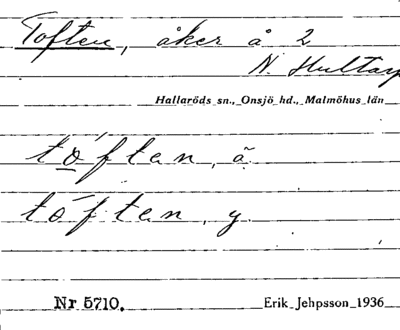 Toften, åker å 2
N. Hultarp
Hallaröds sn., Onsjö hd., Malmöhus län
to̲ften, ä.
tóften, y.
Nr 5710. Erik Jehpsson 1936